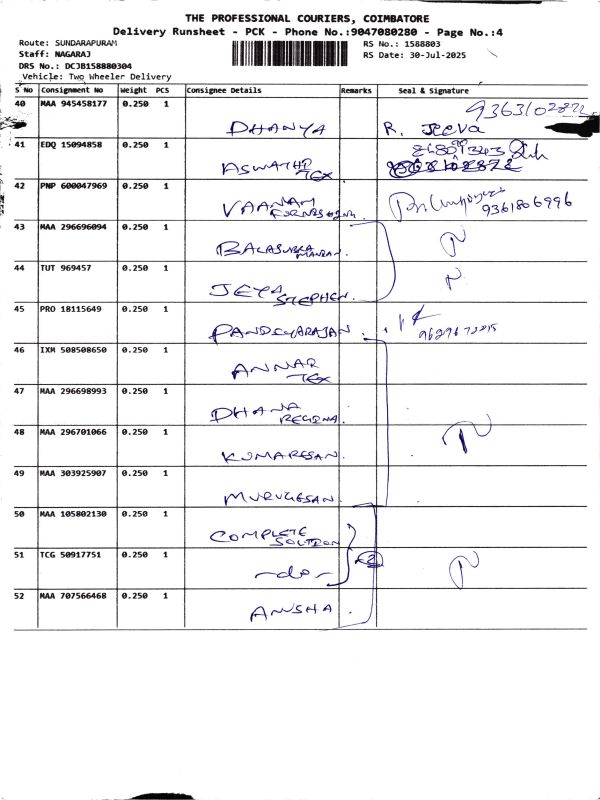 THE PROFESSIONAL COURIERS, COIMBATORE
Delivery Runsheet - PCK - Phone No.:9047080280 - Page No.:4
Route: SUNDARAPURAM
RS No.: 1588803
Staff: NAGARAJ
RS Date: 30-Jul-2025
DRS No.: DCJB158880304
Vehicle: Two Wheeler Delivery
S No Consignment No Weight PCS Consignee Details Remarks Seal & Signature
9363102872
40 MAA 945458177 0.250 1 DHANYA R. JEEVA
41 EDQ 15094858 0.250 1 ASWATHI TEX
42 PNP 600047969 0.250 1 VAANAM FURNISHING 9361806996
43 MAA 296696094 0.250 1 BALASUBRA MANIAN.
44 TUT 969457 0.250 1 JEYA STEPHEN.
45 PRO 18115649 0.250 1 PANDIYARAJAN.
46 IXM 508508650 0.250 1 ANNAR TEX
47 MAA 296698993 0.250 1 DHANA REGINA.
48 MAA 296701066 0.250 1 KUMARESAN.
49 MAA 303925907 0.250 1 MURUGESAN.
50 MAA 105802130 0.250 1 COMPLETE SOLUTION
51 TCG 50917751 0.250 1 -do-
52 MAA 707566468 0.250 1 ANUSHA.